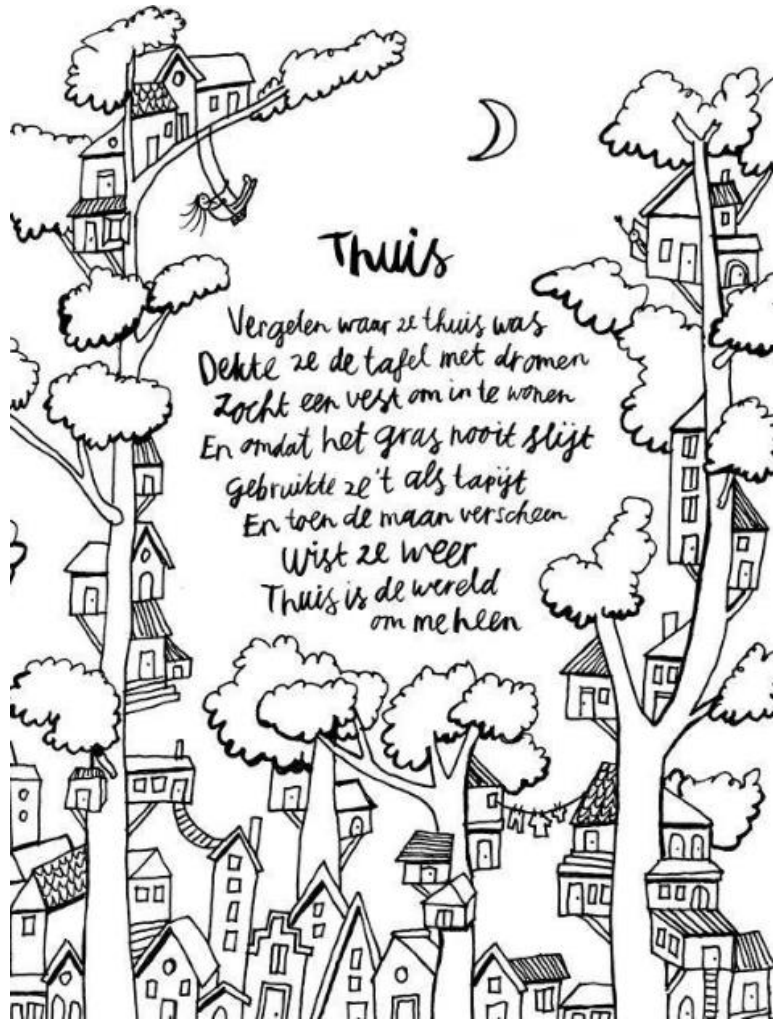 Thuis
Vergeten waar ze thuis was
Dekte ze de tafel met dromen
Zocht een vest om in te wonen
En omdat het gras nooit slijt
Gebruikte ze 't als tapijt
En toen de maan verscheen
Wist ze weer
Thuis is de wereld
om me heen